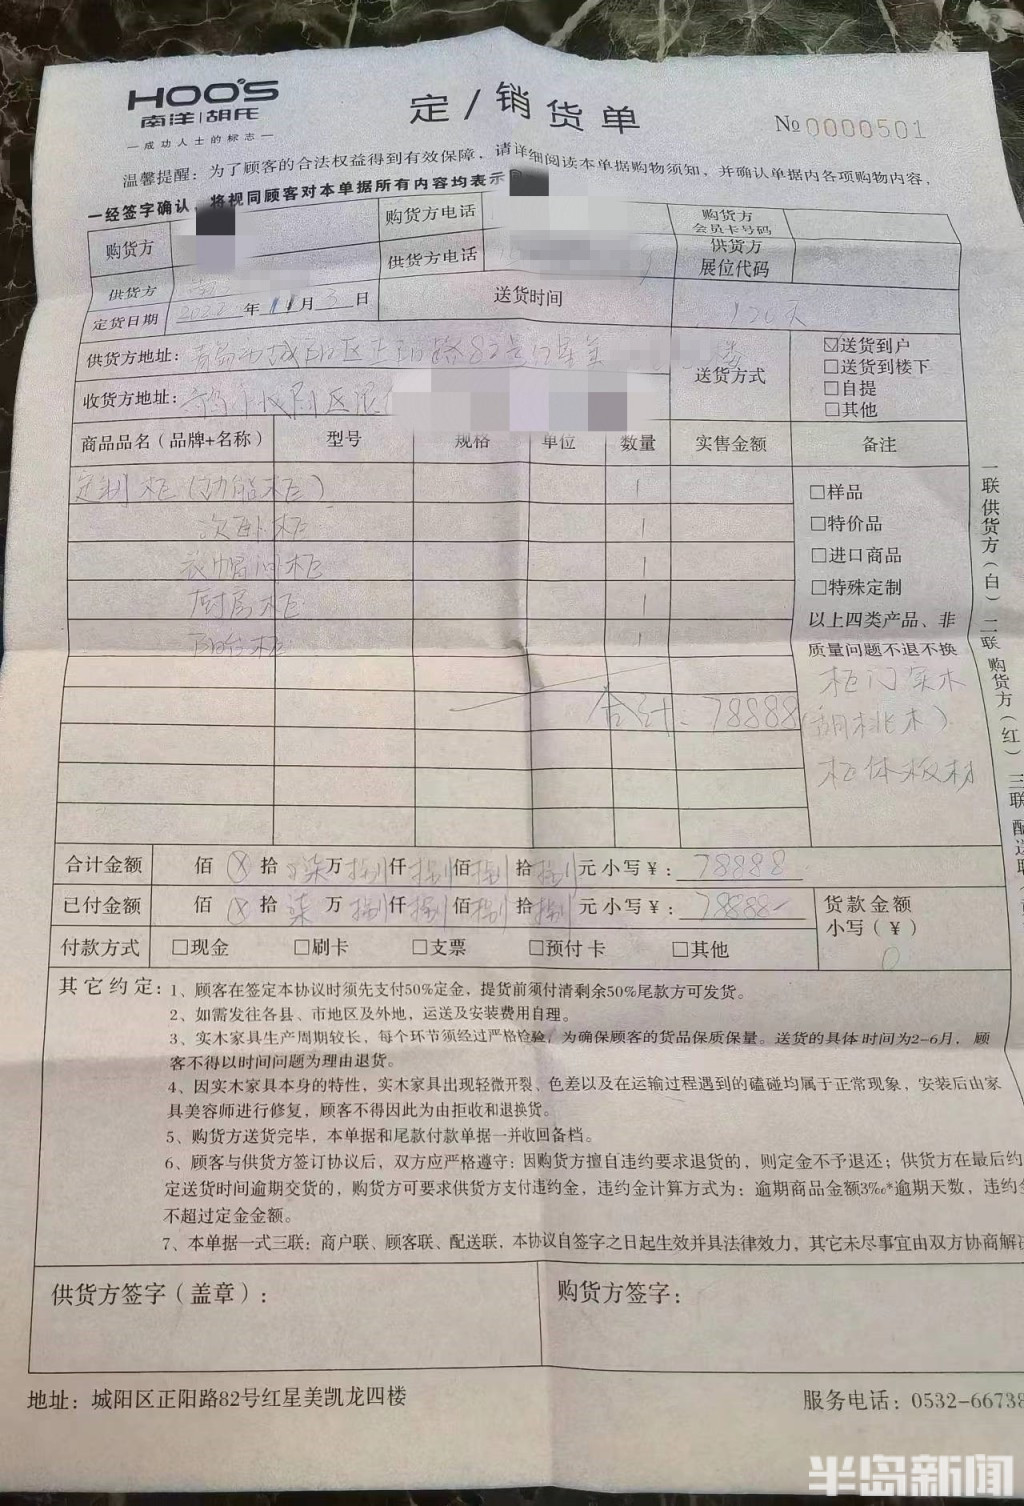 HOO'S
南洋胡氏
—成功人士的标志—
定/销货单
№0000501
温馨提醒：为了顾客的合法权益得到有效保障，请详细阅读本单据购物须知，并确认单据内各项购物内容，
一经签字确认，将视同顾客对本单据所有内容均表示
购货方 购货方电话 购货方会员卡号码
供货方 供货方电话 供货方展位代码
定货日期 2022年11月3日 送货时间 120天
供货方地址：青岛市城阳区正阳路82号红星美 楼 送货方式 ☑送货到户
□送货到楼下
收货方地址：青岛市城阳区 □自提
□其他
商品品名（品牌+名称） 型号 规格 单位 数量 实售金额 备注
定制柜（功能柜） 1 □样品
次卧柜 1 □特价品
衣帽间柜 1 □进口商品
厨房柜 1 □特殊定制
阳台柜 1 以上四类产品、非
质量问题不退不换
合计：78888 柜门实木
（胡桃木）
柜体板材
一联供货方（白）二联购货方（红）三联配送联
合计金额 佰ⓧ拾柒万捌仟捌佰捌拾捌元小写￥：78888
已付金额 佰ⓧ拾柒万捌仟捌佰捌拾捌元小写￥：78888- 货款金额
小写（￥）
0
付款方式 □现金 □刷卡 □支票 □预付卡 □其他
其它约定：1、顾客在签定本协议时须先支付50%定金，提货前须付清剩余50%尾款方可发货。
2、如需发往各县、市地区及外地，运送及安装费用自理。
3、实木家具生产周期较长，每个环节须经过严格检验，为确保顾客的货品保质保量。送货的具体时间为2-6月，顾
客不得以时间问题为理由退货。
4、因实木家具本身的特性，实木家具出现轻微开裂、色差以及在运输过程遇到的磕碰均属于正常现象，安装后由家
具美容师进行修复，顾客不得因此为由拒收和退换货。
5、购货方送货完毕，本单据和尾款付款单据一并收回备档。
6、顾客与供货方签订协议后，双方应严格遵守：因购货方擅自违约要求退货的，则定金不予退还；供货方在最后约
定送货时间逾期交货的，购货方可要求供货方支付违约金，违约金计算方式为：逾期商品金额3‰*逾期天数，违约金
不超过定金金额。
7、本单据一式三联：商户联、顾客联、配送联，本协议自签字之日起生效并具法律效力，其它未尽事宜由双方协商解决
供货方签字（盖章）： 购货方签字：
地址：城阳区正阳路82号红星美凯龙四楼 服务电话：0532-66738
半岛新闻